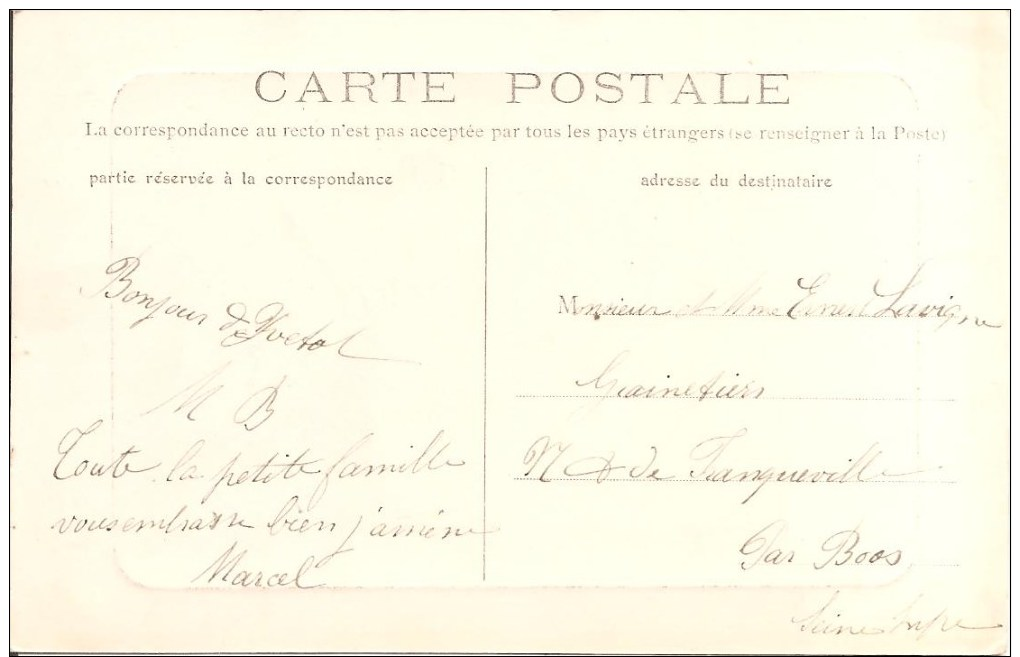 CARTE POSTALE
La correspondance au recto n'est pas acceptée par tous les pays étrangers (se renseigner à la Poste)
partie réservée à la correspondance
adresse du destinataire
Bonjour d'Yvetot
M B
Toute la petite famille
vous embrasse bien j'amène
Marcel
Monsieur et Mme Ernest Lavigne
Grainetiers
N D de Franqueville
Par Boos
Seine Infre